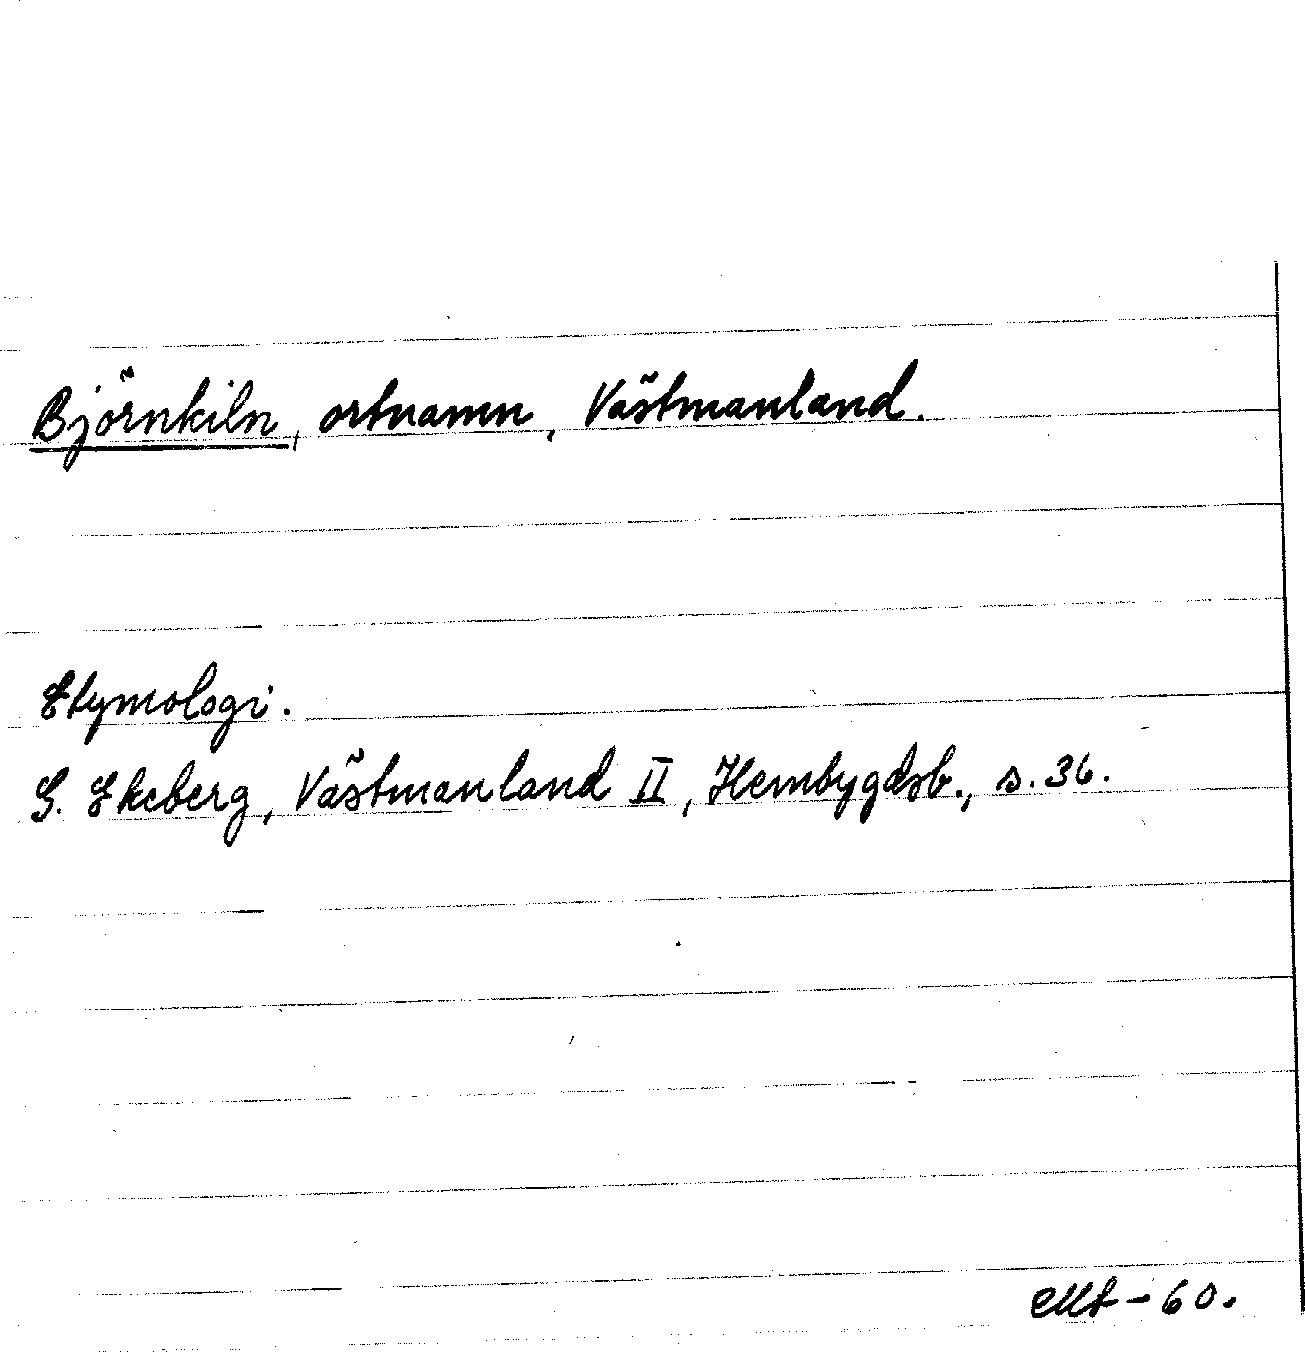 Björnkiln, ortnamn, Västmanland.
Etymologi.
G. Ekeberg, Västmanland II, Hembygdsb., s. 36.
Mt - 60.